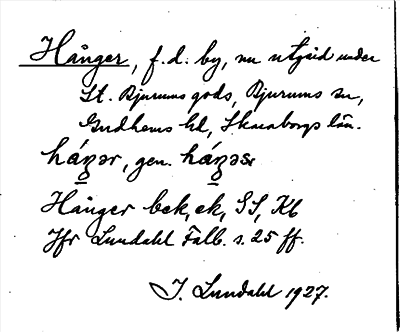 Hånger, f.d. by, nu utgård under
St. Bjurums gods, Bjurums sn,
Gudhems hd, Skaraborgs län.
háŋər, gen. háŋəs
Hånger bek, ek, GS, Kb
Jfr Lundahl Falb. s. 25 ff.
I. Lundahl 1927.